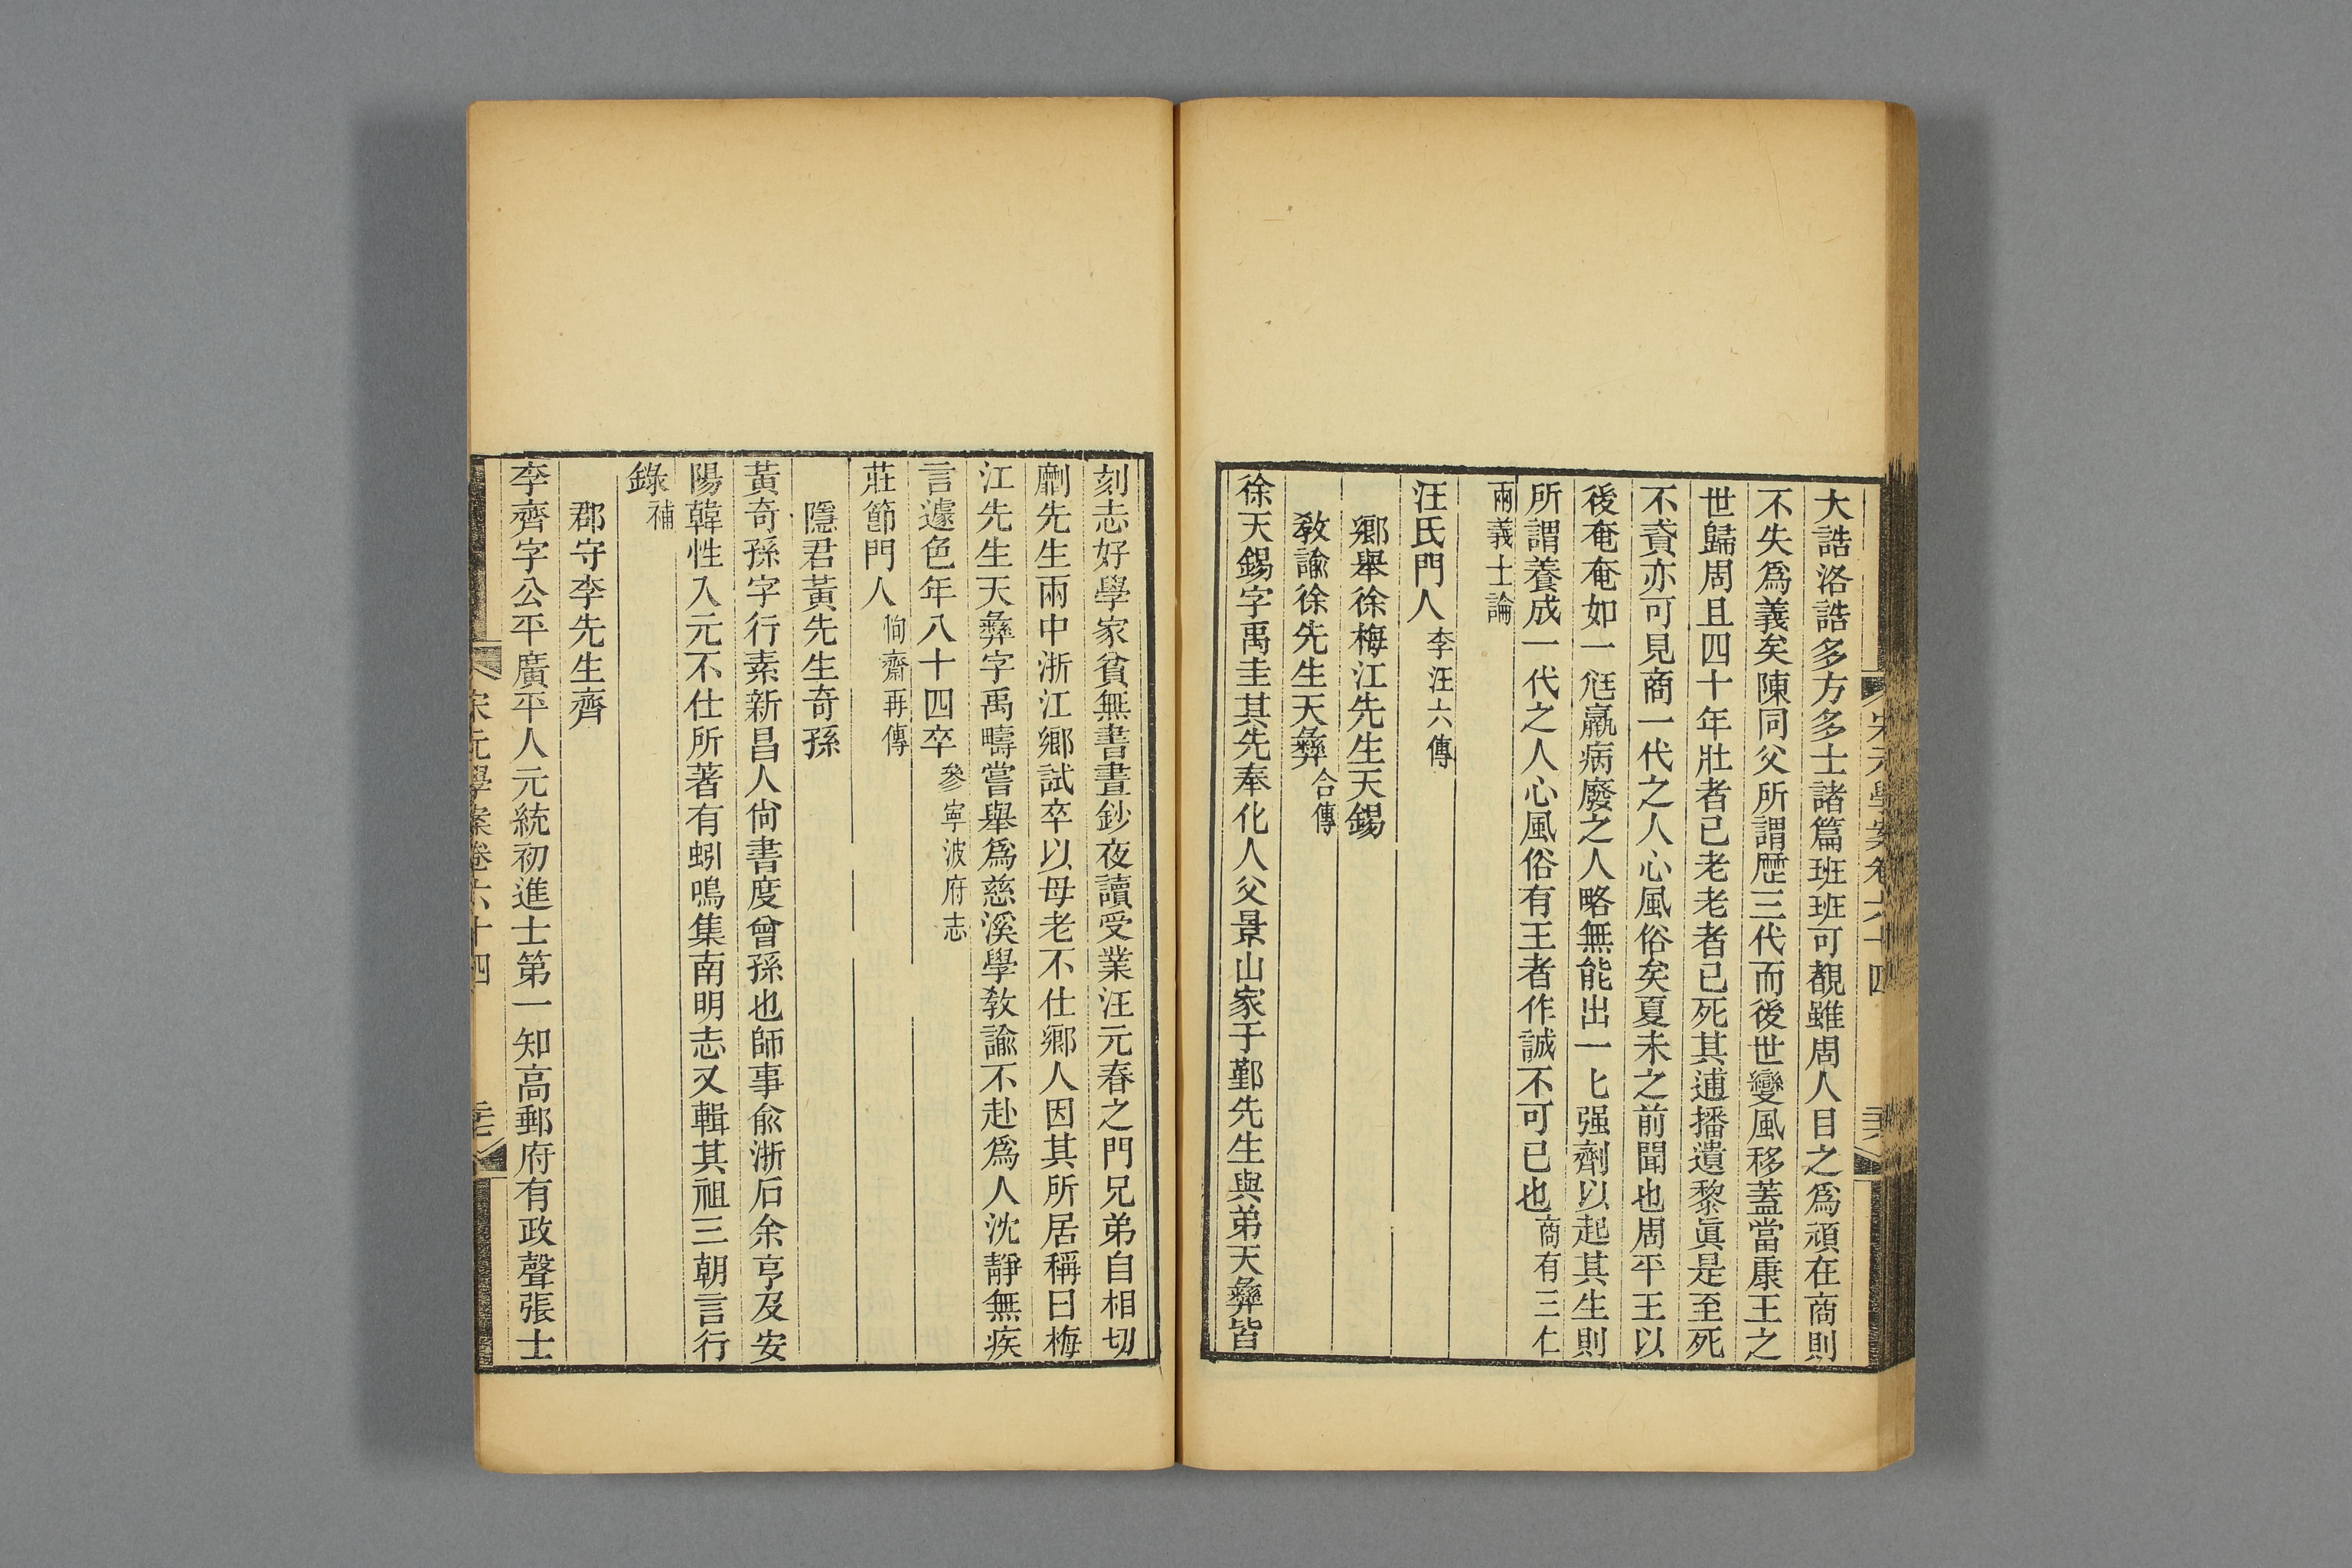 大誥洛誥多方多士諸篇班班可覩雖周人目之爲頑在商則
不失爲義矣陳同父所謂歷三代而後世變風移蓋當康王之
世歸周且四十年壯者已老老者已死其逋播遺黎眞是至死
不貳亦可見商一代之人心風俗矣夏未之前聞也周平王以
後奄奄如一尫羸病廢之人略無能出一匕强劑以起其生則
所謂養成一代之人心風俗有王者作誠不可已也商有三仁
兩義士論
汪氏門人李汪六傳
鄉舉徐梅江先生天錫
敎諭徐先生天彝合傳
徐天錫字禹圭其先奉化人父景山家于鄞先生與弟天彝皆
刻志好學家貧無書晝鈔夜讀受業汪元春之門兄弟自相切
劘先生兩中浙江鄉試卒以母老不仕鄉人因其所居稱曰梅
江先生天彝字禹疇嘗舉爲慈溪學敎諭不赴爲人沈靜無疾
言遽色年八十四卒參寧波府志
莊節門人恂齋再傳
隱君黃先生奇孫
黃奇孫字行素新昌人尙書度曾孫也師事兪浙石余亨及安
陽韓性入元不仕所著有蚓鳴集南明志又輯其祖三朝言行
錄補
郡守李先生齊
李齊字公平廣平人元統初進士第一知高郵府有政聲張士
宋元學案卷六十四